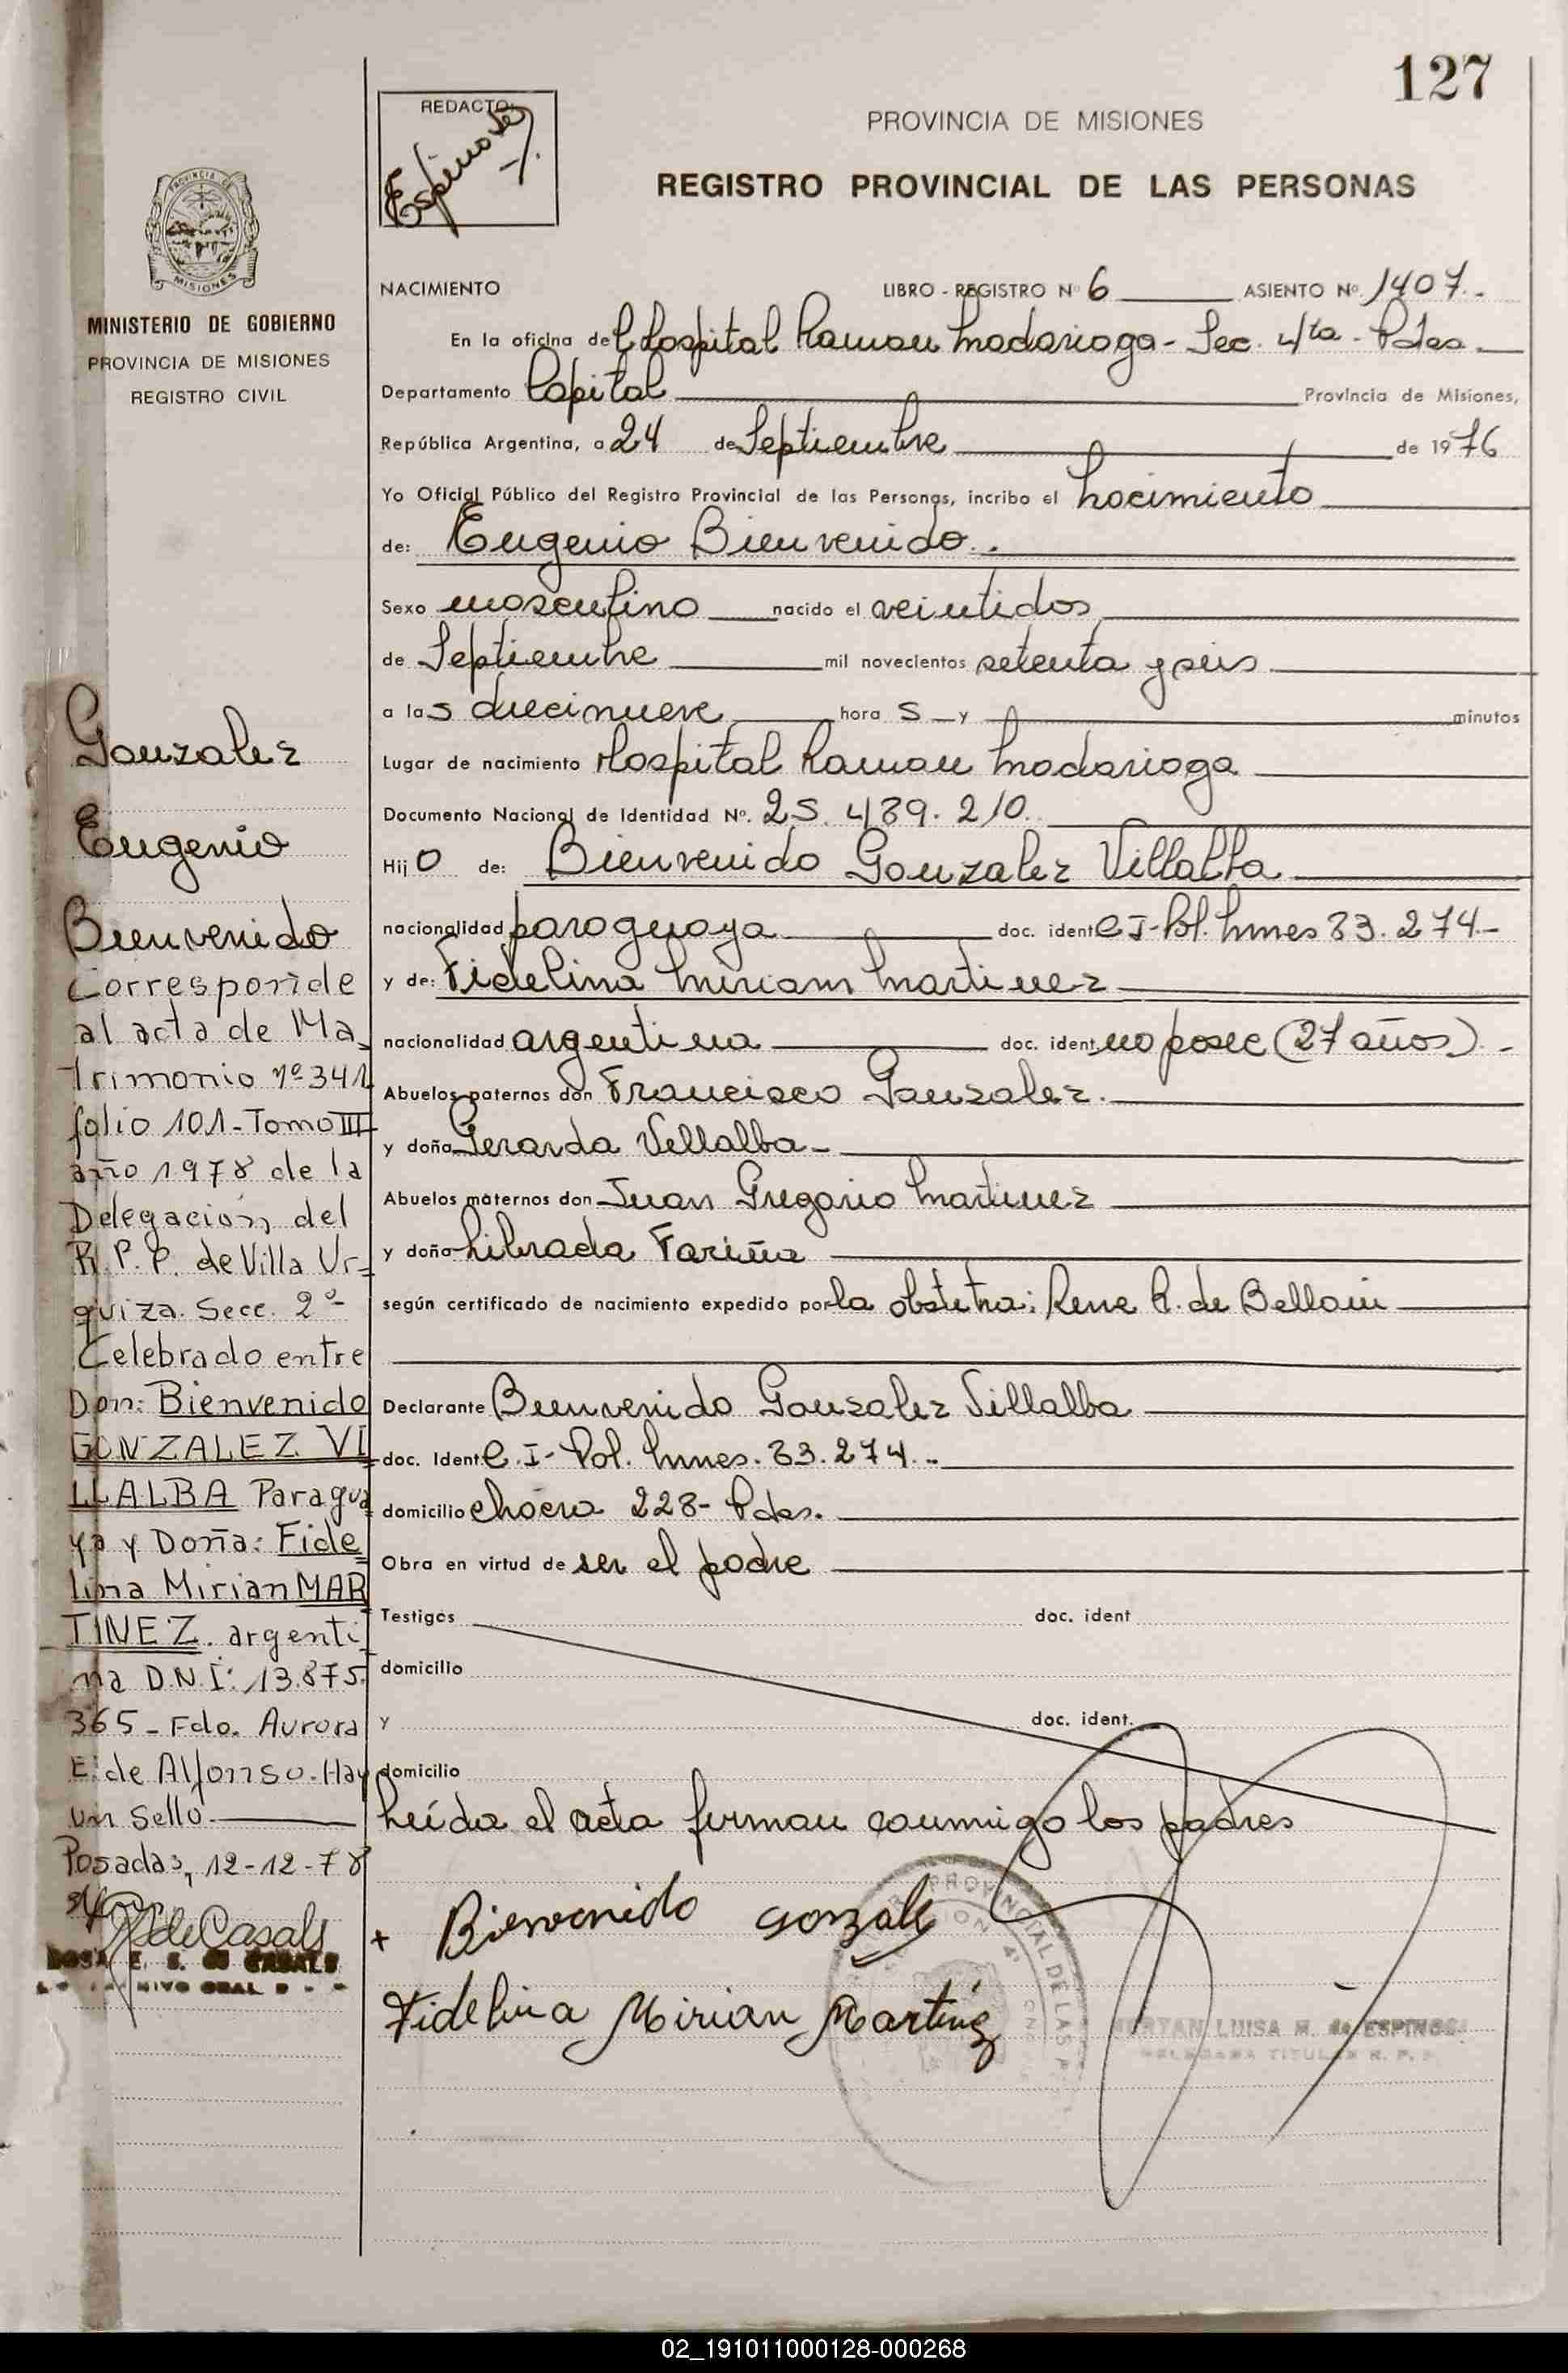 127
REDACTO:
Espinosa
PROVINCIA DE MISIONES
REGISTRO PROVINCIAL DE LAS PERSONAS
PROVINCIA DE
MISIONES
MINISTERIO DE GOBIERNO
PROVINCIA DE MISIONES
REGISTRO CIVIL
NACIMIENTO LIBRO - REGISTRO Nº 6 ASIENTO Nº 1407.-
En la oficina del Hospital Ramon Madariaga - Sec. 4ta - Pdas
Departamento Capital Provincia de Misiones,
República Argentina, a 24 de Septiembre de 1976
Yo Oficial Público del Registro Provincial de las Personas, incribo el nacimiento
de: Eugenio Bienvenido.-
Sexo masculino nacido el veintidos
de Septiembre mil novecientos setenta y seis
a las diecinueve hora s y minutos
Lugar de nacimiento Hospital Ramon Madariaga
Documento Nacional de Identidad Nº. 25.489.210.
Hijo de: Bienvenido Gonzalez Villalba
nacionalidad paraguaya doc. ident C I- Pol. Mnes 83.274-
y de: Fidelina Miriam Martinez
nacionalidad argentina doc. ident no posee (27 años).-
Abuelos paternos don Francisco Gonzalez.
y doña Geranda Villalba-
Abuelos maternos don Juan Gregorio Martinez
y doña Librada Fariña
según certificado de nacimiento expedido por la obstetra: Rene R. de Belloni
Declarante Bienvenido Gonzalez Villalba
doc. Ident C.I- Pol. Mnes. 83.274.-
domicilio chacra 228- Pdas.
Obra en virtud de ser el padre
Testigos doc. ident
domicilio
y doc. ident.
domicilio
Leída el acta firman conmigo los padres
+ Bienvenido Gonzale
Fidelina Mirian Martinez
PROVINCIAL DE LAS
MIRYAN LUISA M. de ESPINOSA
DELEGADA TITULAR R. P. P.
Gonzalez
Eugenio
Bienvenido
Corresponde
al acta de Ma
trimonio nº 341
folio 101-Tomo III
año 1978 de la
Delegación del
R. P. P. de Villa Ur=
quiza. Secc. 2º-
Celebrado entre
Don: Bienvenido
GONZALEZ VI
LLALBA Paragua
ya y Doña: Fide
lina Mirian MAR
TINEZ. argenti
na D.N.I: 13.875.
365- Fdo. Aurora
E. de Alfonso. Hay
un sello.
Posadas, 12-12-78
de Casals
ROSA E. S. de CASALS
02_191011000128-000268